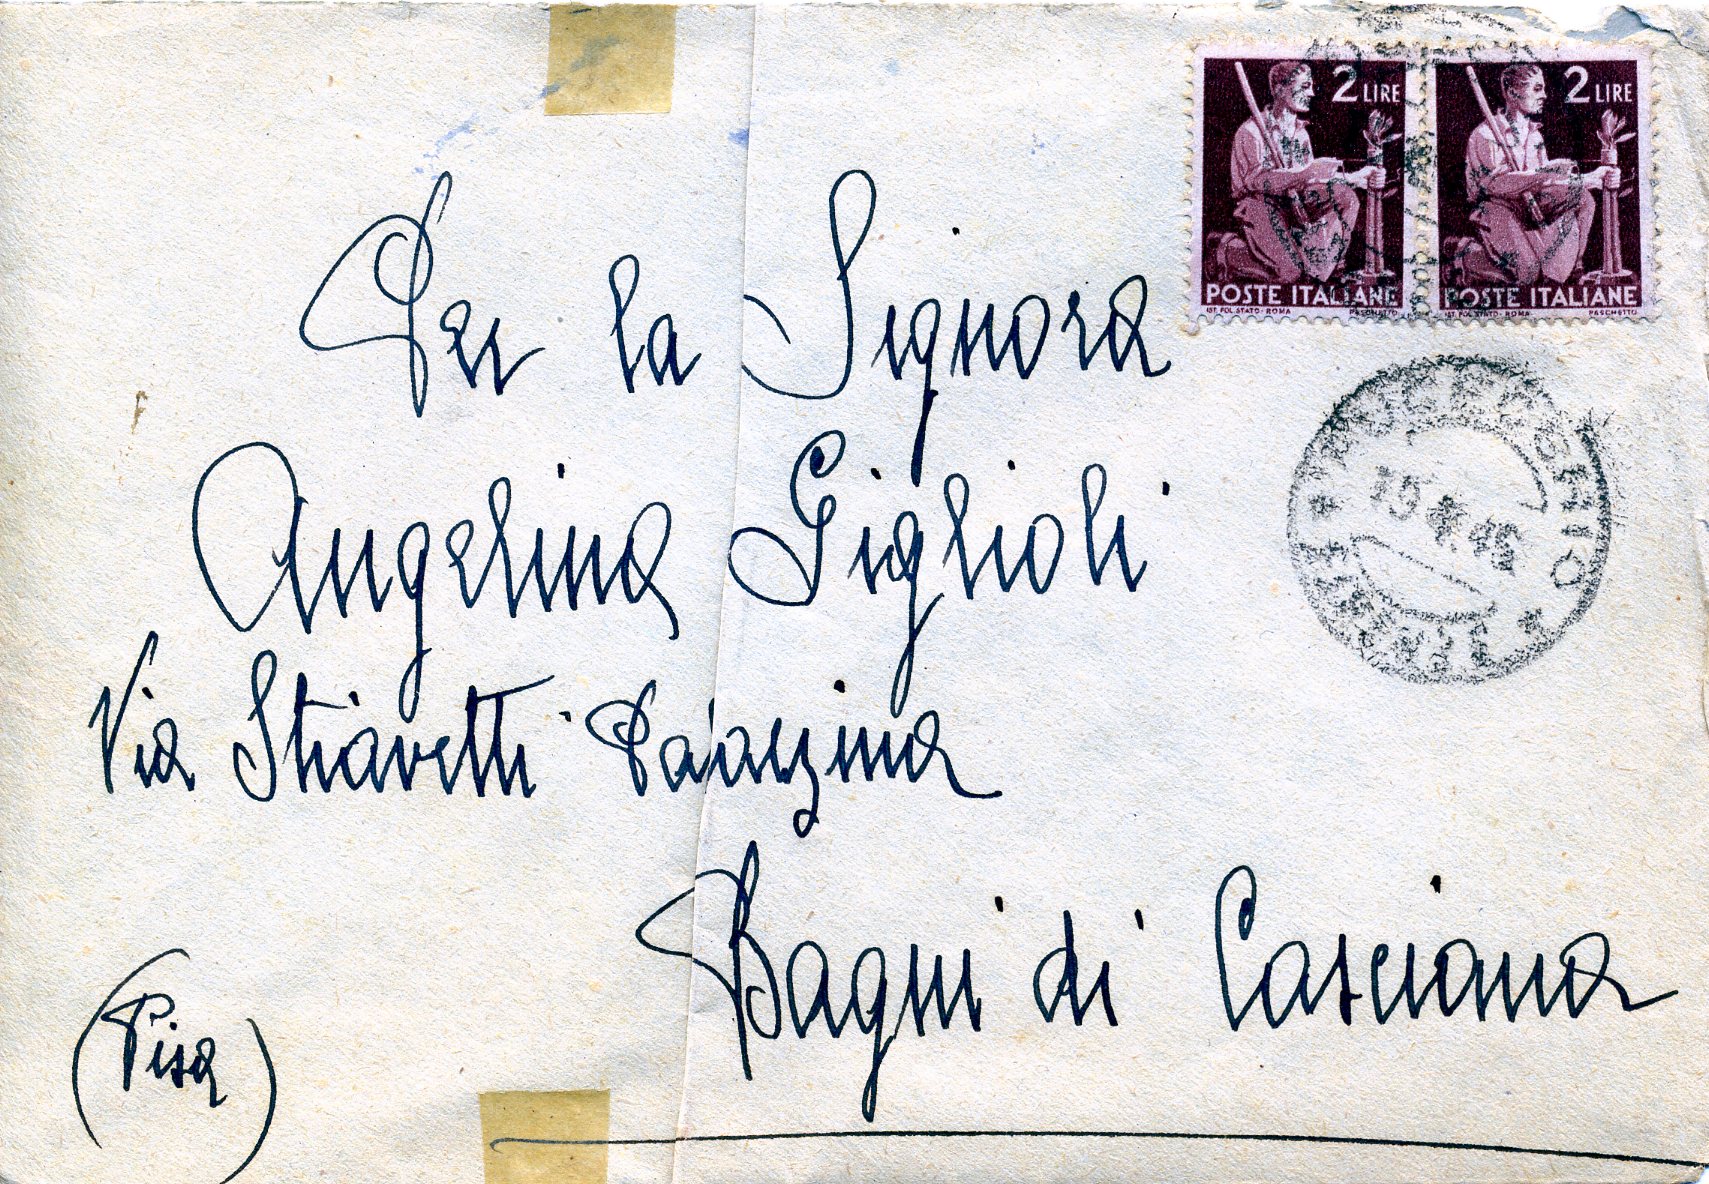 2 LIRE
POSTE ITALIANE
IST. POL. STATO - ROMA PASCHETTO
2 LIRE
POSTE ITALIANE
IST. POL. STATO - ROMA PASCHETTO
Per la Signora
Angelina Giglioli
Via Stiavetti Palazzina
Bagni di Casciana
(Pisa)
FUCECCHIO
FIRENZE